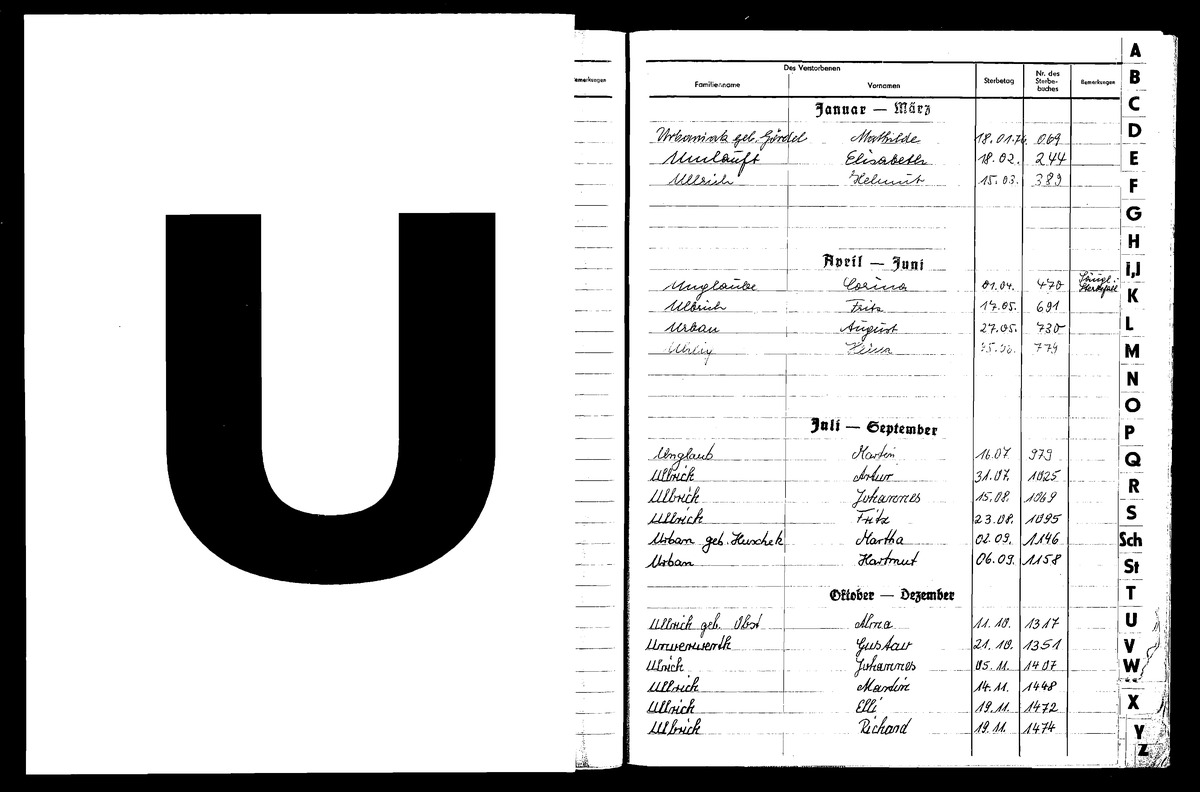 U
Bemerkungen
Des Verstorbenen
Familienname Vornamen Sterbetag Nr. des Sterbe-buches Bemerkungen
Januar — März
Urbaniak geb. Gördel Mathilde 18.01.76 069
Umlauft Elisabeth 18.02. 244
Ullrich Helmut 15.03. 389
April — Juni
Unglaube Corina 01.04. 470 Säugl.-Sterbefall
Ulbrich Fritz 17.05. 691
Urban August 27.05. 730
Uhlig 779
Juli — September
Unglaub Martin 16.07. 979
Ulbrich Artur 31.07. 1025
Ullbrich Johannes 15.08. 1069
Ullbrich Fritz 23.08. 1095
Urban geb. Huschek Martha 02.09. 1146
Urban Hartmut 06.09. 1158
Oktober — Dezember
Ullrich geb. Obst Alma 11.10. 1317
Unverwerth Gustav 21.10. 1351
Ulrich Johannes 05.11. 1407
Ullrich Martin 14.11. 1448
Ullrich Elli 19.11. 1472
Ulbrich Richard 19.11. 1474
A
B
C
D
E
F
G
H
I,J
K
L
M
N
O
P
Q
R
S
Sch
St
T
U
V
W
X
Y
Z